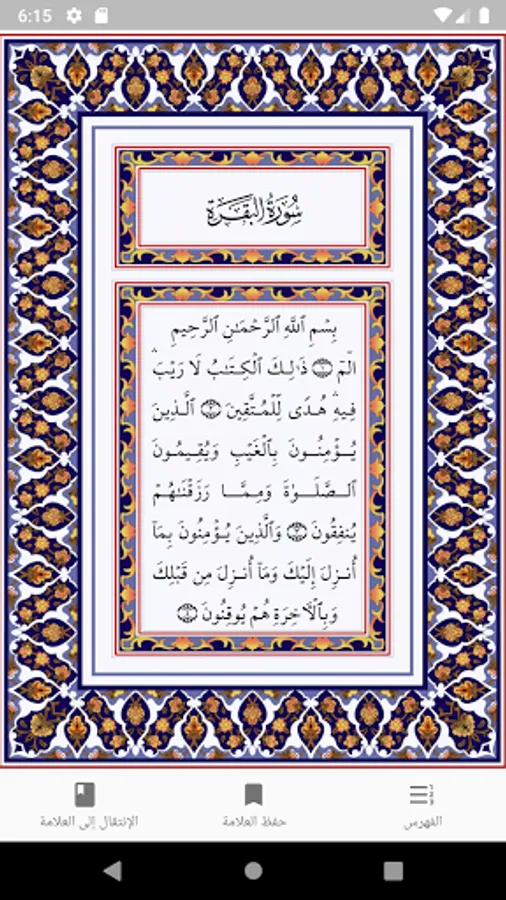 6:15
سُورَةُ البَقَرَةِ
بِسْمِ ٱللَّهِ ٱلرَّحْمَٰنِ ٱلرَّحِيمِ
الٓمٓ ۝١ ذَٰلِكَ ٱلْكِتَٰبُ لَا رَيْبَۛ
فِيهِۛ هُدًى لِّلْمُتَّقِينَ ۝٢ ٱلَّذِينَ
يُؤْمِنُونَ بِٱلْغَيْبِ وَيُقِيمُونَ
ٱلصَّلَوٰةَ وَمِمَّا رَزَقْنَٰهُمْ
يُنفِقُونَ ۝٣ وَٱلَّذِينَ يُؤْمِنُونَ بِمَآ
أُنزِلَ إِلَيْكَ وَمَآ أُنزِلَ مِن قَبْلِكَ
وَبِٱلْءَاخِرَةِ هُمْ يُوقِنُونَ ۝٤
الفهرس
حفظ العلامة
الإنتقال إلى العلامة